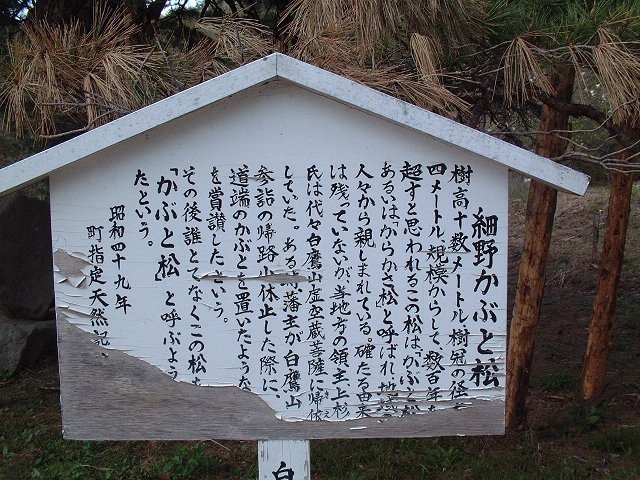 細野かぶと松
樹高十数メートル樹冠の径
四メートル規模からして、数百年
超すと思われるこの松はかぶと
あるいは「からかさ松と呼ばれ
人々から親しまれている。確たる由来
は残っていないが、当地方の領主上杉
氏は代々白鷹山虚空蔵菩薩に帰依
していた。ある 藩主が白鷹山
参詣の帰路小休止した際に
道端のかぶとを置いたような
を賞讃したという。
その後誰とてなくこの松を
「かぶと松」と呼ぶよう
たという。
昭和四十九年
町指定天然記
白